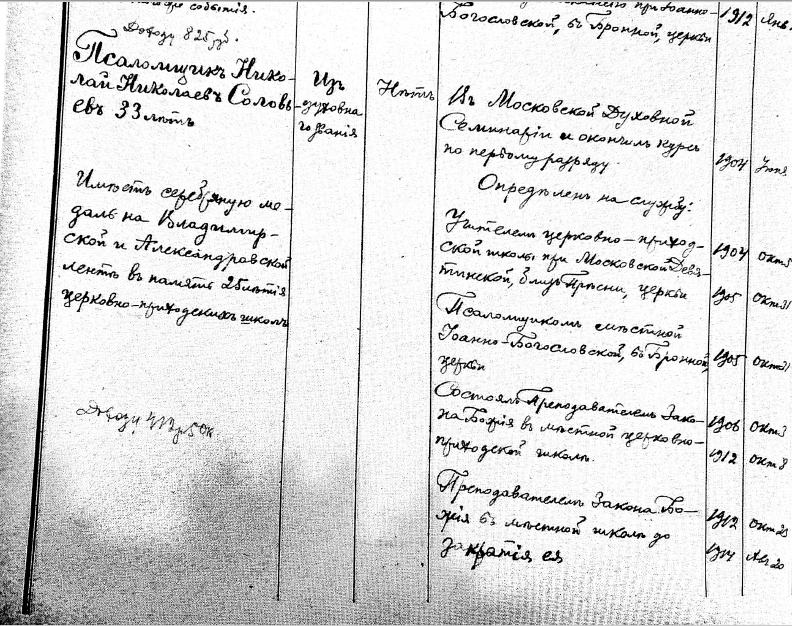 событія.
Доходу 825 р.
Псаломщикъ Нико-
лай Николаевъ Соловь-
евъ 33 лѣтъ
Имѣетъ серебряную ме-
даль на Владимир-
ской и Александровской
лентѣ въ память 25лѣтія
церковно-приходскихъ школъ
Доходу
Изъ
духовна
го званія
Нѣтъ
при Іоанно-
Богословской, въ Бронной, церкви
1912 Янв.
Въ Московской Духовной
Семинаріи и окончилъ курсъ
по первому разряду.
1904 Іюня
Опредѣленъ на службу:
Учителемъ церковно-приход-
ской школы при Московской Девя-
тинской, близъ Прѣсни, церкви
1904 Окт. 5
1905 Окт. 31
Псаломщикомъ къ мѣстной
Іоанно-Богословской, въ Бронной,
церкви
1905 Окт. 31
Состоялъ Преподавателемъ Зако-
на Божія въ мѣстной церковно-
приходской школѣ.
1906 Окт. 3
1912 Окт. 8
Преподавателемъ Закона Бо-
жія въ мѣстной школѣ до
закрытія ея
1912 Окт. 25
1917 Авг. 20